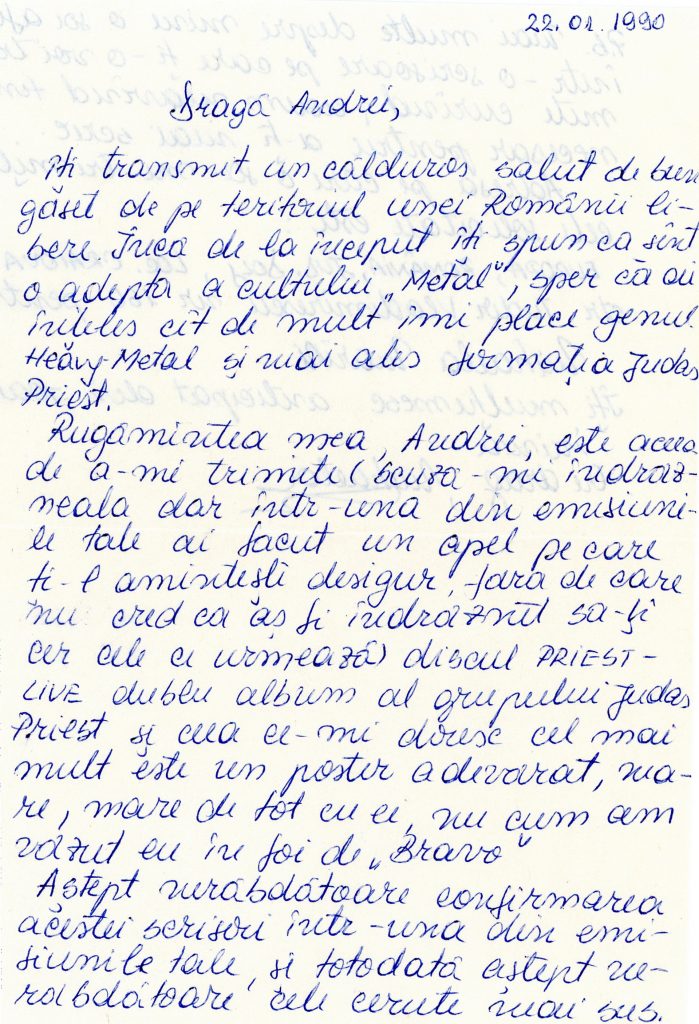 22.01.1990
Dragă Andrei,
Îți transmit un călduros salut de bun
găsit de pe teritoriul unei Românii li-
bere. Încă de la început îți spun ca sînt
o adeptă a cultului „Metal", sper că ai
înțeles cît de mult îmi place genul
Heavy-Metal și mai ales formația Judas
Priest.
Rugămintea mea, Andrei, este aceea
de a-mi trimite (scuză-mi îndrăz-
neala dar într-una din emisiuni-
le tale ai făcut un apel pe care
ți-l amintești desigur, fără de care
nu cred ca aș fi îndrăznit să-ți
cer cele ce urmează) discul PRIEST-
LIVE dublu album al grupului Judas
Priest și ceea ce-mi doresc cel mai
mult este un poster adevărat, ma-
re, mare de tot cu ei, nu cum am
văzut eu în foi de „Bravo"
Aștept nerăbdătoare confirmarea
acestei scrisori într-una din emi-
siunile tale, și totodată aștept ne-
răbdătoare cele cerute mai sus.